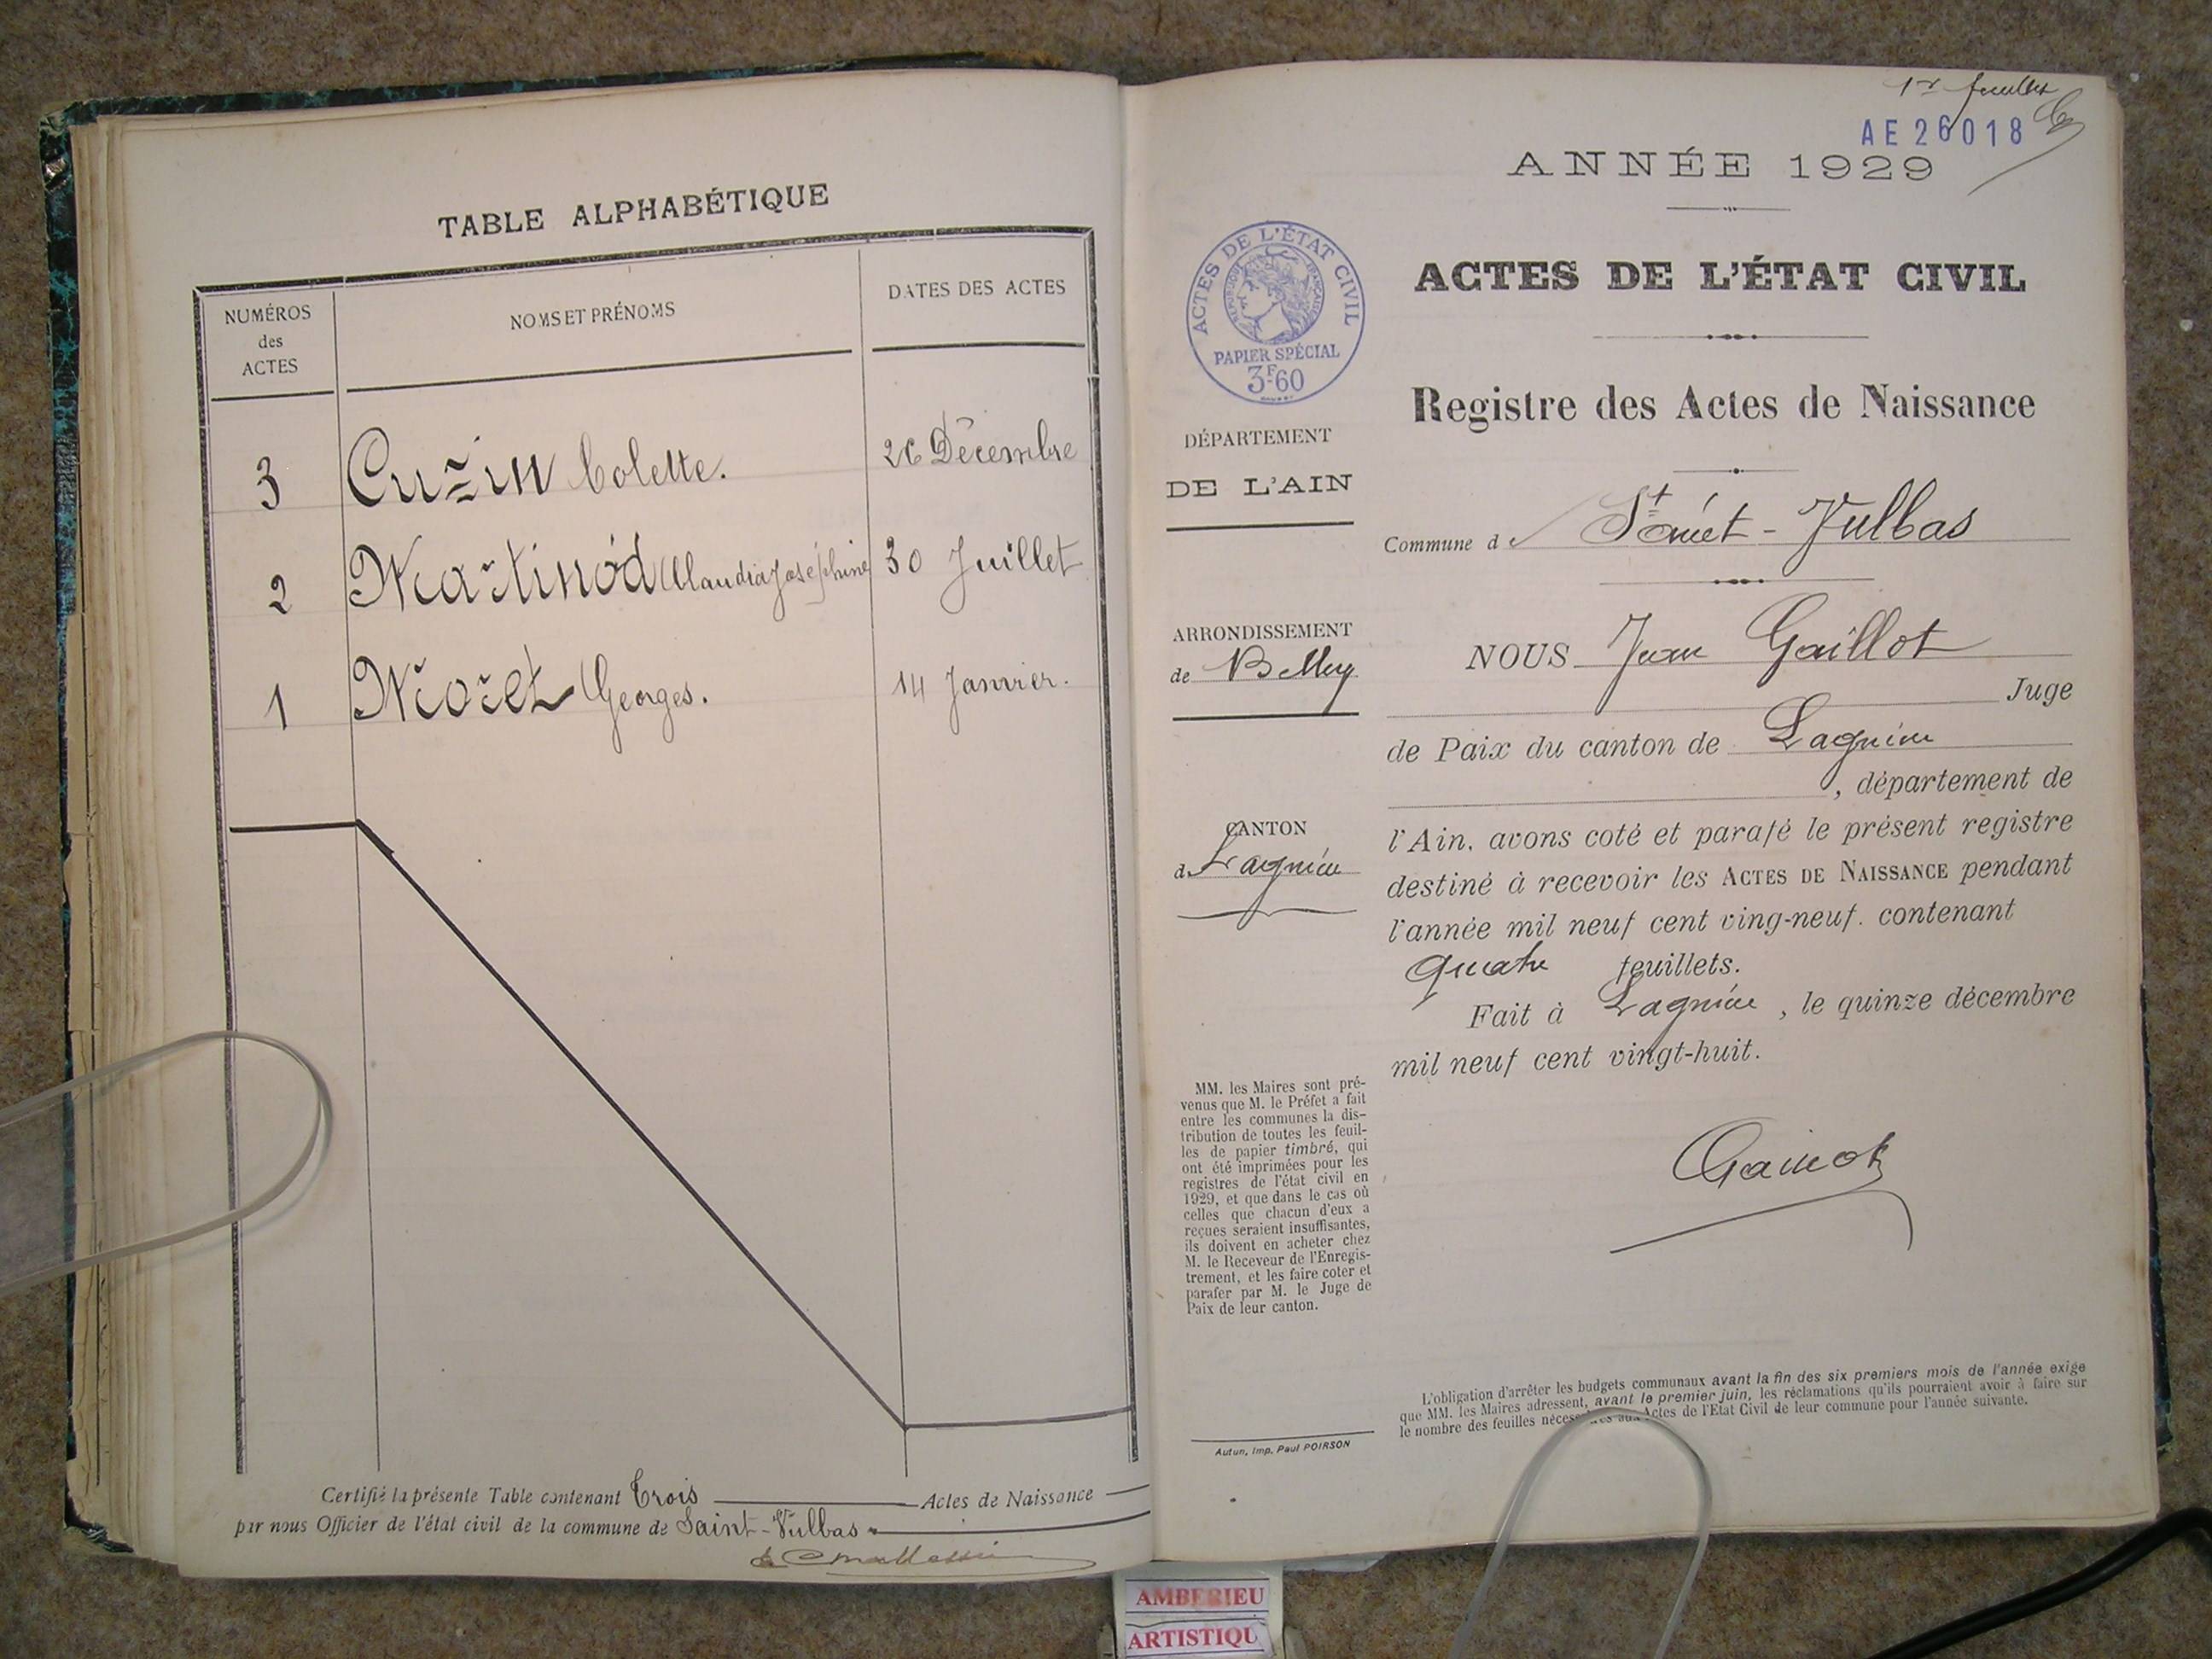 TABLE ALPHABÉTIQUE
NUMÉROS
des
ACTES
NOMS ET PRÉNOMS
DATES DES ACTES
3 Cuzin Colette. 26 Décembre
2 Martinod Claudia Joséphine 30 Juillet
1 Moret Georges. 14 Janvier.
Certifié la présente Table contenant Trois Actes de Naissance
par nous Officier de l'état civil de la commune de Saint-Vulbas
1er feuillet
AE 26018
ANNÉE 1929
ACTES DE L'ÉTAT CIVIL
PAPIER SPÉCIAL
3F60
Registre des Actes de Naissance
DÉPARTEMENT
DE L'AIN
Commune d Saint-Vulbas
ARRONDISSEMENT
de Belley
CANTON
d Lagnieu
NOUS Jean Gaillot
Juge
de Paix du canton de Lagnieu
, département de
l'Ain, avons coté et parafé le présent registre
destiné à recevoir les ACTES DE NAISSANCE pendant
l'année mil neuf cent ving-neuf. contenant
quatre feuillets.
Fait à Lagnieu, le quinze décembre
mil neuf cent vingt-huit.
Gaillot
MM. les Maires sont pré-
venus que M. le Préfet a fait
entre les communes la dis-
tribution de toutes les feuil-
les de papier timbré, qui
ont été imprimées pour les
registres de l'état civil en
1929, et que dans le cas où
celles que chacun d'eux a
reçues seraient insuffisantes,
ils doivent en acheter chez
M. le Receveur de l'Enregis-
trement, et les faire coter et
parafer par M. le Juge de
Paix de leur canton.
Autun, Imp. Paul POIRSON
L'obligation d'arrêter les budgets communaux avant la fin des six premiers mois de l'année exige
que MM. les Maires adressent, avant le premier juin, les réclamations qu'ils pourraient avoir à faire sur
le nombre des feuilles nécessaires aux Actes de l'Etat Civil de leur commune pour l'année suivante.
AMBERIEU
ARTISTIQU